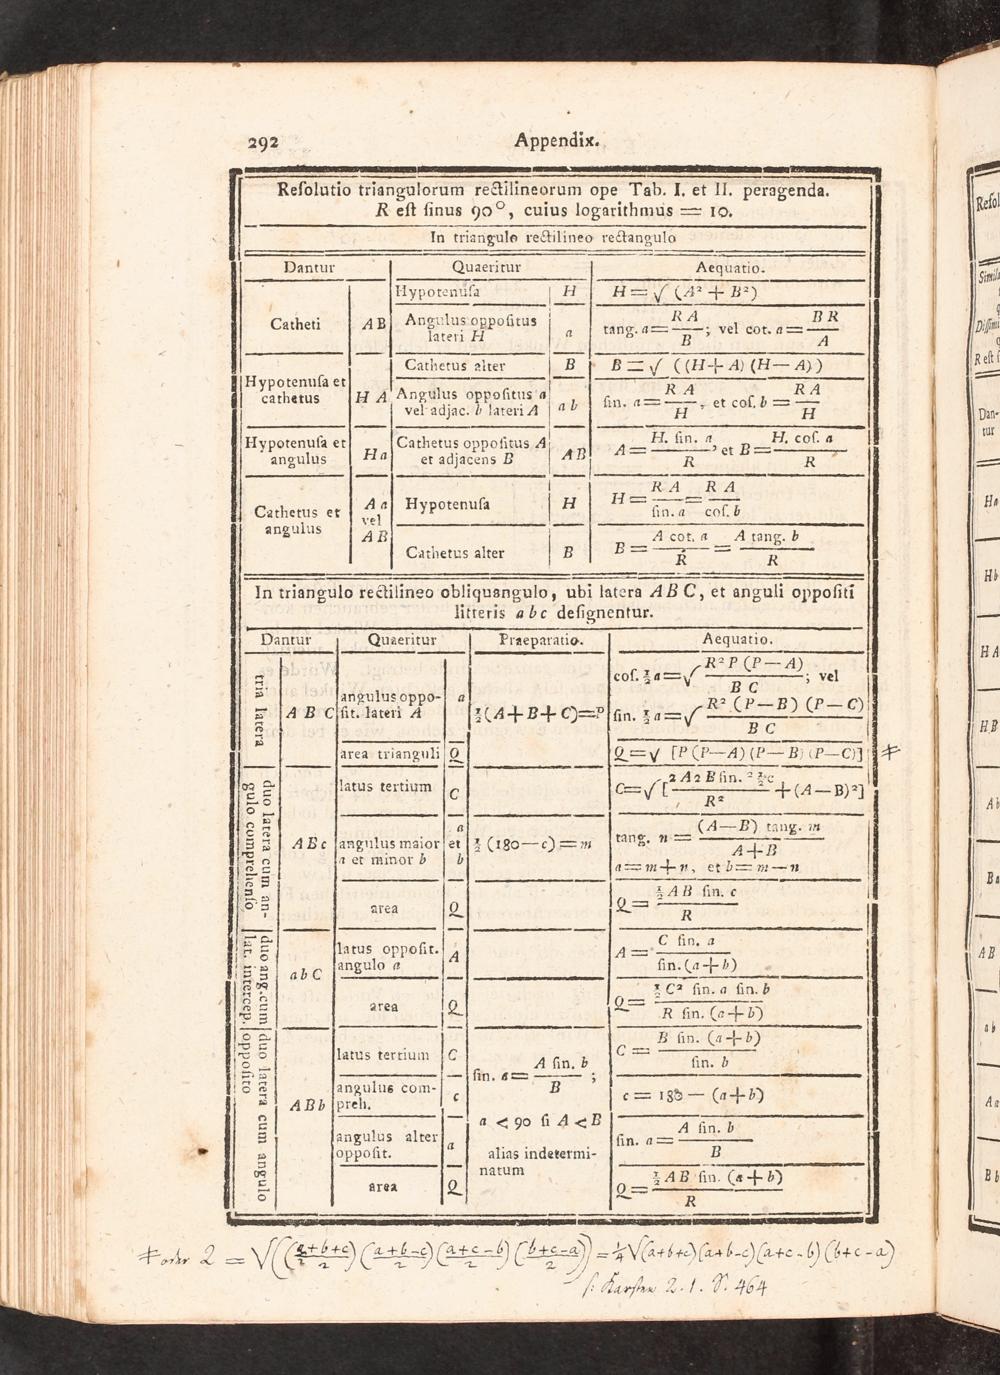 292 Appendix.
Resolutio triangulorum rectilineorum ope Tab. I. et II. peragenda.
R est sinus 90°, cuius logarithmus = 10.
In triangulo rectilineo rectangulo
Dantur Quaeritur Aequatio.
Catheti AB
Hypotenusa H H = √ (A² + B²)
Angulus oppositus lateri H a tang. a = R A / B; vel cot. a = B R / A
Hypotenusa et cathetus H A
Cathetus alter B B = √ ((H + A) (H — A))
Angulus oppositus a vel adjac. b lateri A a b sin. a = R A / H, et cos. b = R A / H
Hypotenusa et angulus H a
Cathetus oppositus A et adjacens B AB A = H. sin. a / R, et B = H. cos. a / R
Cathetus et angulus A a vel A B
Hypotenusa H H = R A / sin. a = R A / cos. b
Cathetus alter B B = A cot. a / R = A tang. b / R
In triangulo rectilineo obliquangulo, ubi latera A B C, et anguli oppositi
litteris a b c designentur.
Dantur Quaeritur Praeparatio. Aequatio.
tria latera A B C
angulus opposit. lateri A a ½ (A + B + C) = P cos. ½ a = √ R² P (P — A) / B C; vel
sin. ½ a = √ R² (P — B) (P — C) / B C
area trianguli Q Q = √ [P (P — A) (P — B) (P — C)] ⧧
duo latera cum angulo comprehenso A B c
latus tertium C C = √ [2 A 2 B sin. ² ½ c / R² + (A — B)²]
angulus maior a et minor b a et b ½ (180 — c) = m tang. n = (A — B) tang. m / A + B
a = m + n, et b = m — n
area Q Q = ½ A B sin. c / R
duo ang. cum lat. intercep. a b C
latus opposit. angulo a A A = C sin. a / sin. (a + b)
area Q Q = ½ C² sin. a sin. b / R sin. (a + b)
duo latera cum angulo opposito A B b
latus tertium C C = B sin. (a + b) / sin. b
sin. a = A sin. b / B;
angulus compreh. c c = 180 — (a + b)
a < 90 si A < B
alias indeterminatum
angulus alter opposit. a sin. a = A sin. b / B
area Q Q = ½ A B sin. (a + b) / R
⧧ oder Q = √((a+b+c / 2) (a+b-c / 2) (a+c-b / 2) (b+c-a / 2)) = ¼ √(a+b+c) (a+b-c) (a+c-b) (b+c-a)
s. Karsten 2. 1. S. 464